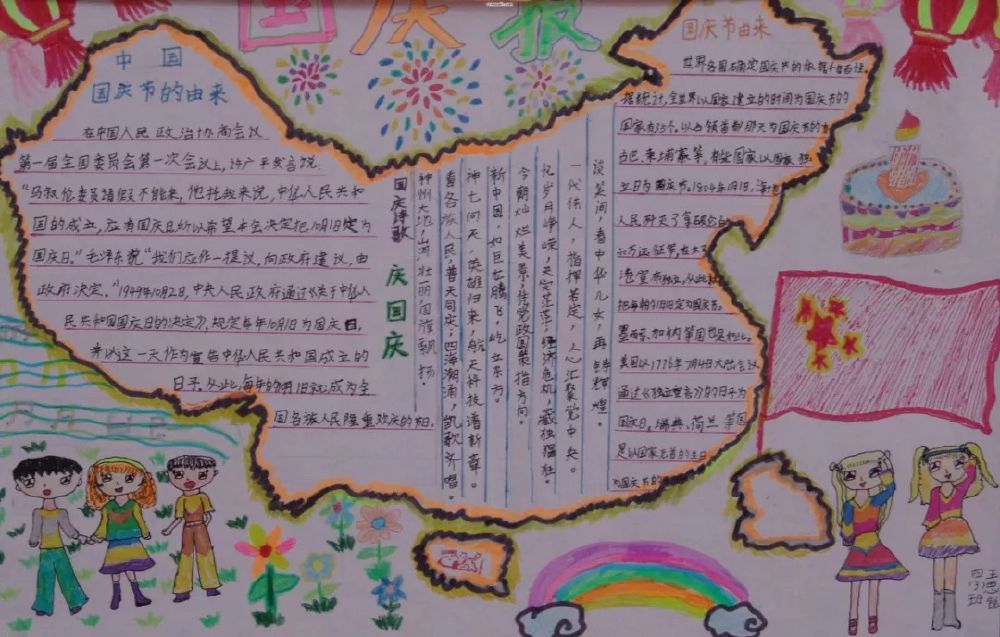 国庆报
中国
国庆节的由来
在中国人民政治协商会议
第一届全国委员会第一次会议上,许广平发言说:
“马叙伦委员请假不能来,他托我来说,中华人民共和
国的成立,应有国庆日,所以希望本会决定把10月1日定为
国庆日。”毛泽东说“我们应作一提议,向政府建议,由
政府决定。”1949年10月2日,中央人民政府通过《关于中华人
民共和国国庆日的决定》,规定每年10月1日为国庆日,
并以这一天作为宣告中华人民共和国成立的
日子。从此,每年的10月1日就成为全
国各族人民隆重欢庆的
国庆诗歌
庆国庆
神州大地,山河壮丽国旗飘扬。
看各族人民,普天同庆;四海潮涌,凯歌齐唱。
神七问天,英雄归来,航天科技谱新章。
新中国,如巨龙腾飞,屹立东方。
今朝灿烂美景,凭党政国策指方向。
忆岁月峥嵘,天苍茫茫,经济危机,
一代伟人,指挥若定,人心汇聚党中央。
谈笑间,看中华儿女,再铸辉煌。
国庆节由来
世界各国确定国庆节的依据千奇百怪。
据统计,全世界以国家建立的时间为国庆节的
国家有35个。以占领首都那天为国庆节的
古巴、柬埔寨等,有些国家以国家独
立日为国庆节。1804年1月1日,海地
人民歼灭了拿破仑的
六万远征军,在太
港宣布独立,从此
把每年的1月1日定为国庆节。
墨西哥、加纳等国也是如此。
美国以1776年7月4日大陆会议
通过《独立宣言》的7日平为
国庆日。瑞典、荷兰等国
是以国家元首的生日
为国庆节的
四
班
王思